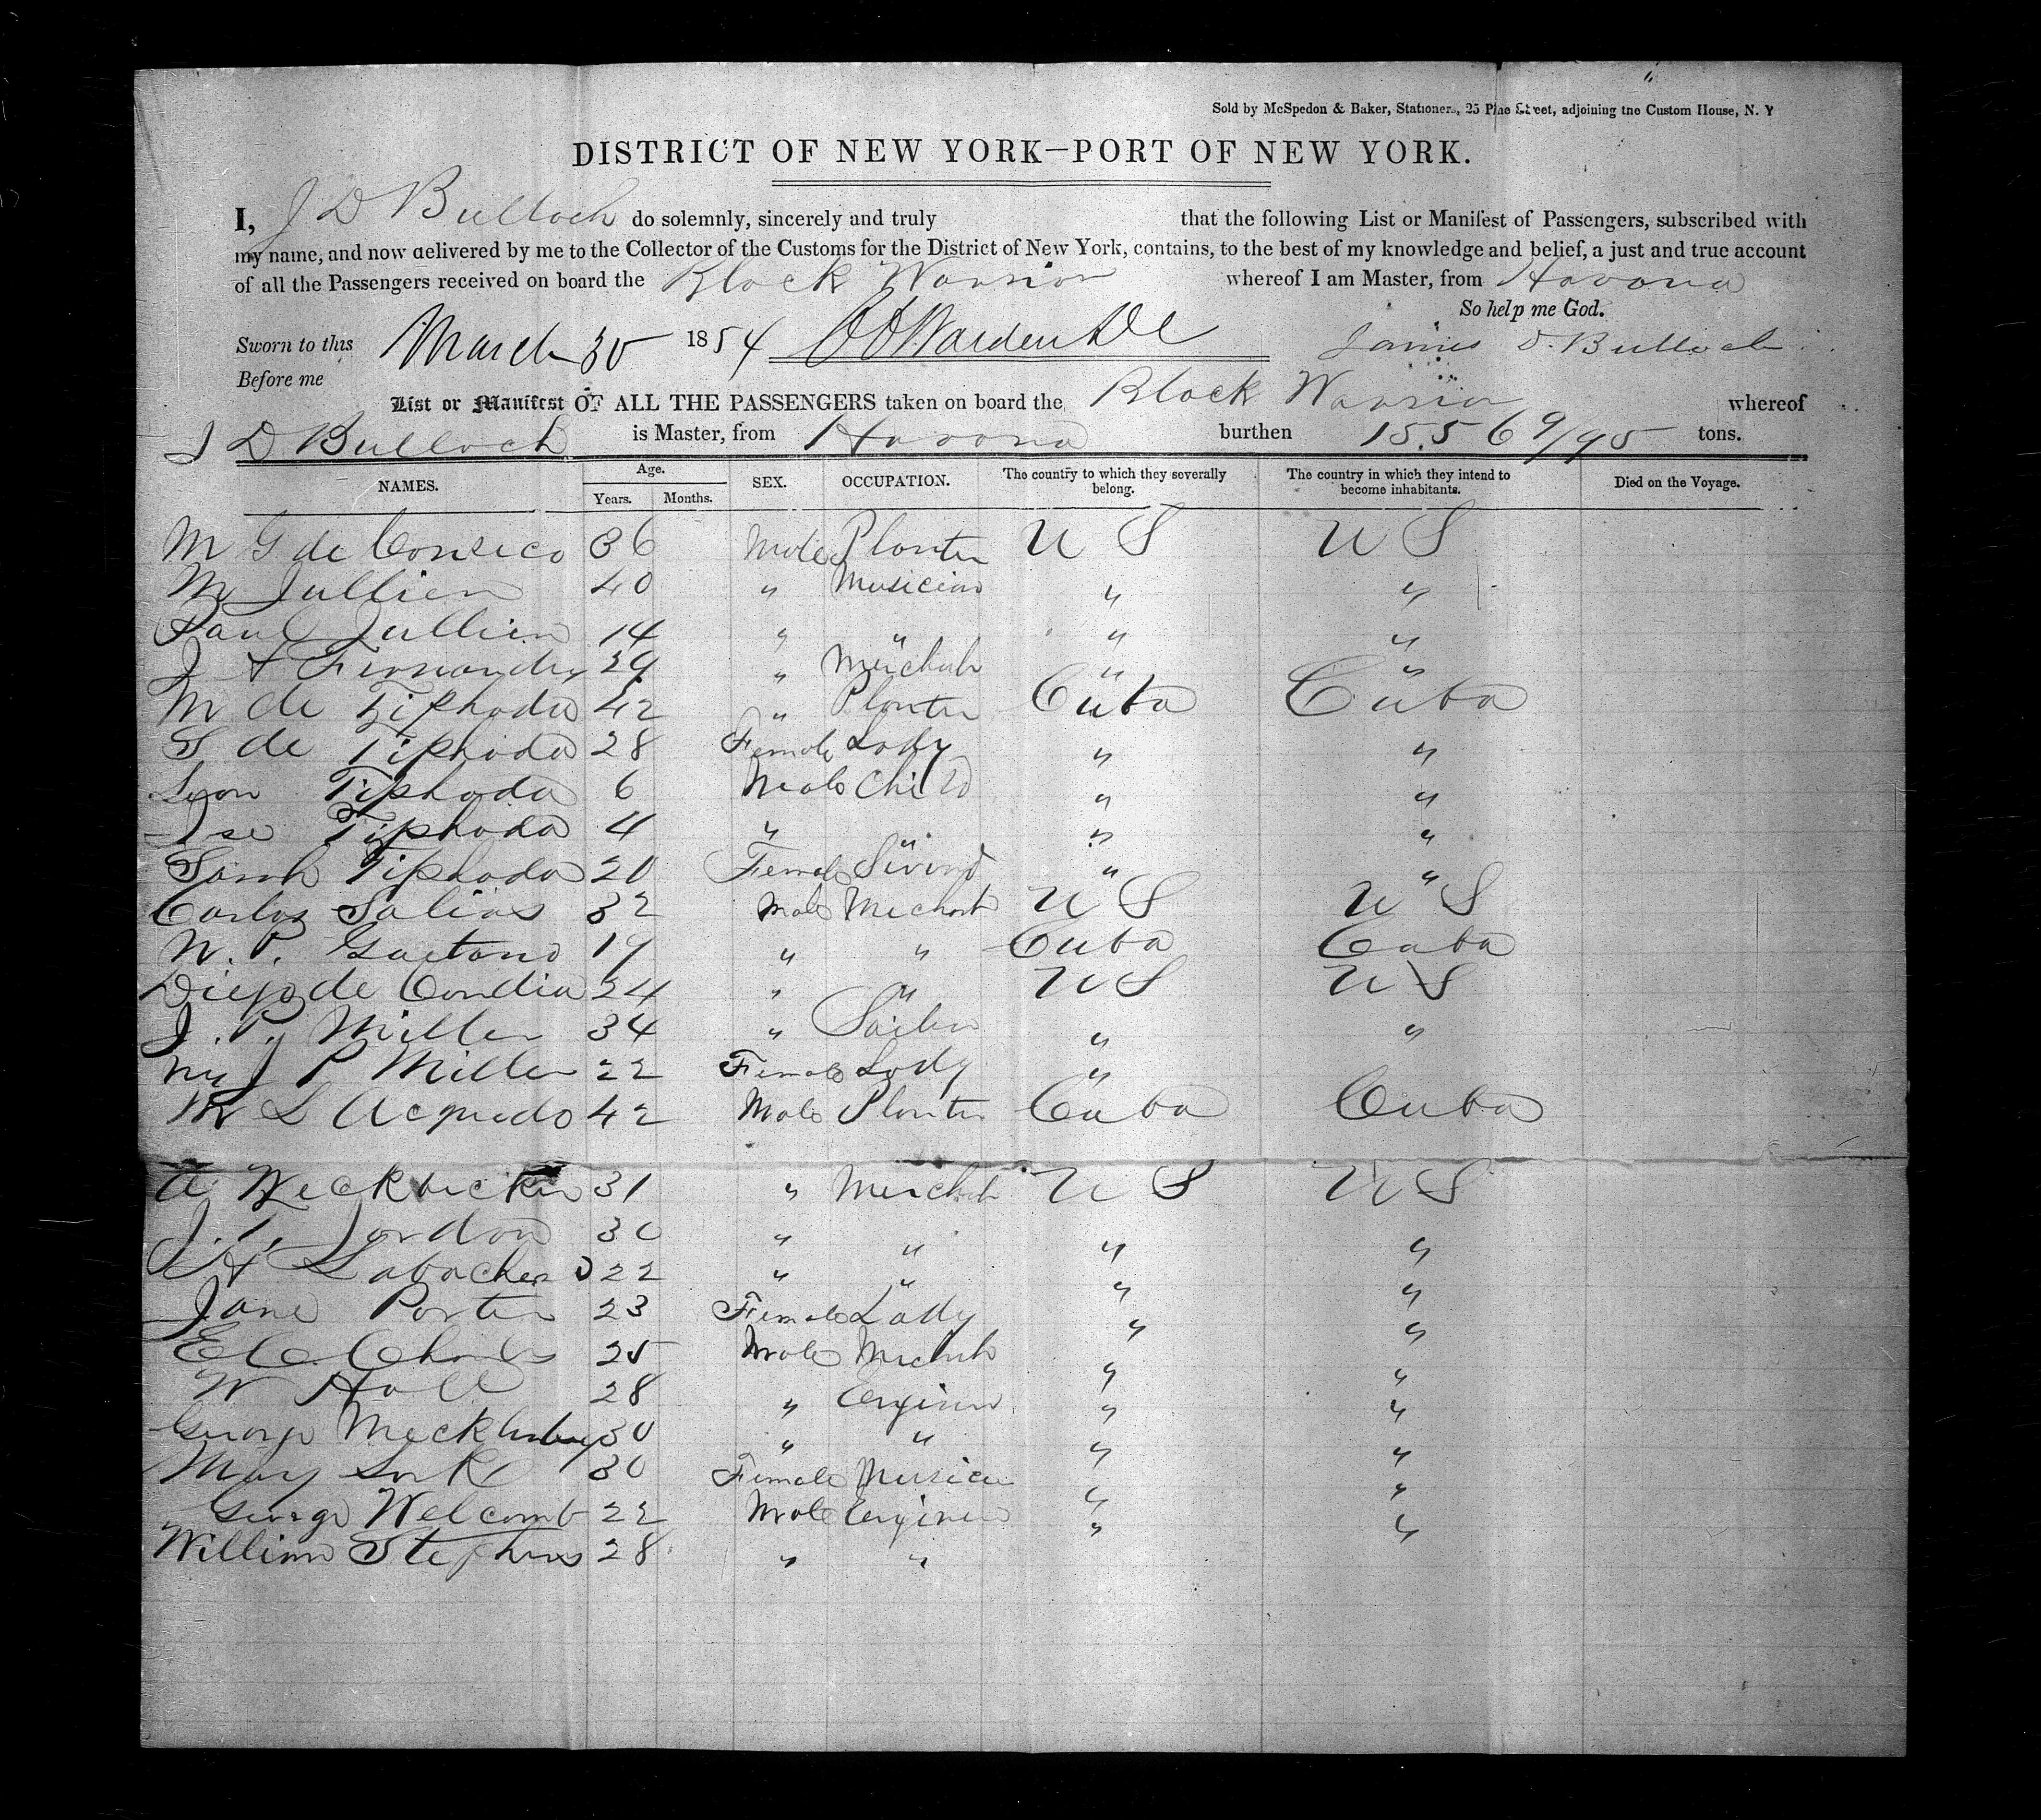 Sold by McSpedon & Baker, Stationers, 25 Pine Street, adjoining the Custom House, N. Y
DISTRICT OF NEW YORK—PORT OF NEW YORK.
I, J D Bulloch do solemnly, sincerely and truly that the following List or Manifest of Passengers, subscribed with
my name, and now delivered by me to the Collector of the Customs for the District of New York, contains, to the best of my knowledge and belief, a just and true account
of all the Passengers received on board the Black Warrior whereof I am Master, from Havana
So help me God.
Sworn to this March 30 1854 James D. Bulloch
Before me
List or Manifest OF ALL THE PASSENGERS taken on board the Black Warrior whereof
J D Bulloch is Master, from Havana burthen 1556 9/95 tons.
NAMES. Age. Years. Months. SEX. OCCUPATION. The country to which they severally belong. The country in which they intend to become inhabitants. Died on the Voyage.
M G de 36 Male Planter U S U S
M Jullien 40 " Musician " "
Paul Jullien 14 " " " "
J A Fernandez 29 " Merchant " "
M de Tiphoda 42 " Planter Cuba Cuba
S de Tiphoda 28 Female Lady " "
Leon Tiphoda 6 Male Child " "
Tiphoda 4 " " " "
Sarah Tiphoda 20 Female Servant " "
Carlos Salias 32 Male Merchant U S U S
N. P. Gaetano 19 " " Cuba Cuba
Diego de 24 " " U S U S
J. P. Miller 34 " Sailor " "
Mrs J P Miller 22 Female Lady "
M L Acquedo 42 Male Planter Cuba Cuba
A 31 " Merchant U S U S
J. Jordan 30 " " " "
A 22 " " " "
Jane Porter 23 Female Lady " "
E C Charles 25 Male Merchant " "
W Hall 28 " Engineer " "
George 30 " " " "
Mary 30 Female " "
George Welcomb 22 Male Engineer " "
William Stephens 28 " "